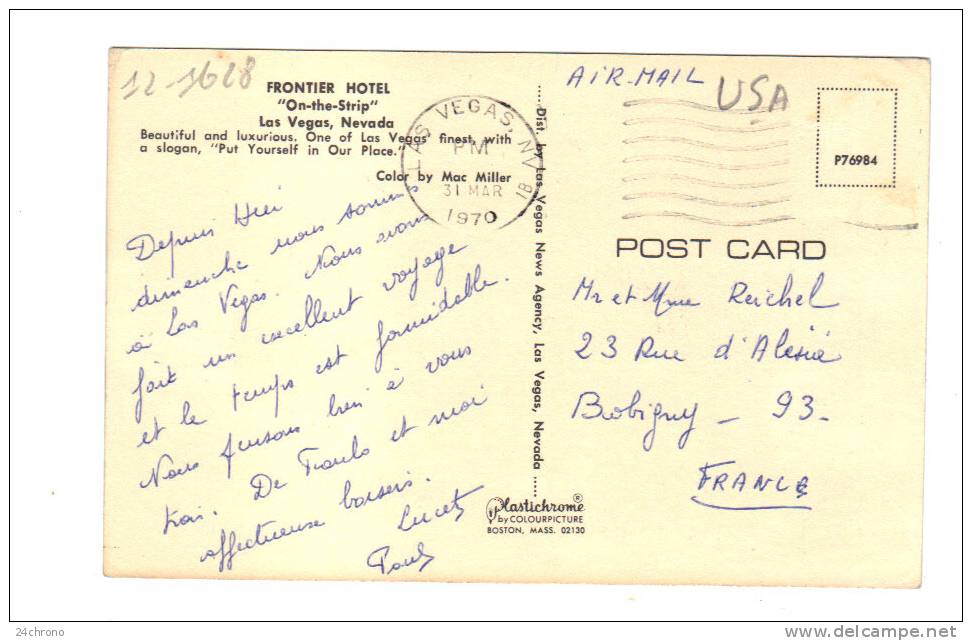 12-1628
FRONTIER HOTEL
"On-the-Strip"
Las Vegas, Nevada
Beautiful and luxurious. One of Las Vegas' finest, with
a slogan, "Put Yourself in Our Place."
Color by Mac Miller
Depuis Hier
dimanche nous sommes
à Las Vegas. Nous avons
fait un excellent voyage
et le temps est formidable.
Nous pensons bien à vous
De et moi
affectueux baisers.
Dist. by Las Vegas News Agency, Las Vegas, Nevada
Plastichrome ®
by COLOURPICTURE
BOSTON, MASS. 02130
AIR-MAIL
USA
LAS VEGAS, NV
PM
31 MAR
1970
P76984
POST CARD
Mr et Mme Reichel
23 Rue d'Alésia
Bobigny - 93-
FRANCE
24chrono
delcampe.net